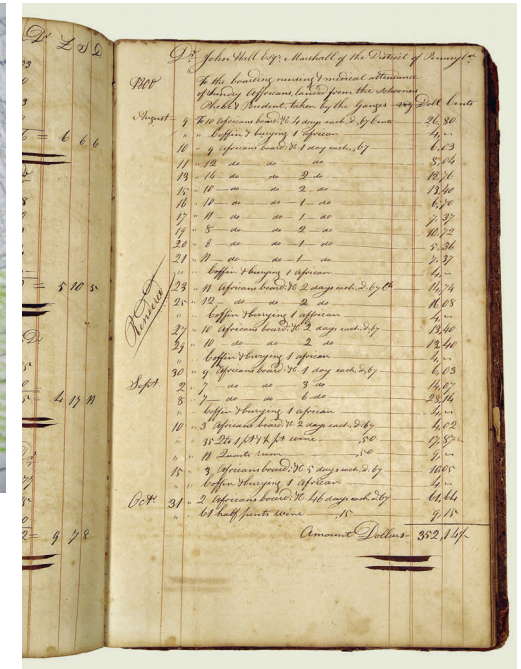 Dr. John Hall Esqr. Marshall of the District of Pennsyla.
1800 To the boarding nursing & medical attendance
of Sundry Africans, landed from the Schooners
Phebe & Prudent, taken by the Ganges Doll Cents
August 9 To 10 Africans board. &c 4 days each. @ ,67 Cents 26,80
" " Coffin & burying 1 african 4,"
10 " 9 Africans board. &c 1 day each. ,67 6.03
11 " 12 do do do 8,04
13 " 14 do do 2 do 18,76
15 " 10 do do 2 do 13,40
16 " 10 do do 1 do 6,70
17 " 11 do do 1 do 7,37
19 " 8 do do 2 do 10,72
20 " 8 do do 1 do 5,36
21 " 11 do do 1 do 7,37
" " Coffin & burying 1 African 4,"
23 " 11 Africans board. &c 2 days each. @ ,67 Cts 14,74
25 " 12 do do 2 do 16,08
" Coffin & burying 1 affrican 4,"
27 " 10 Africans board. &c 2 days each. @ ,67 13,40
29 " 10 do do 2 do 13,40
Coffin & burying 1 african 4,"
30 " 9 Africans board. &c 1 day each. @ ,67 6,03
Sept 2 " 7 do do 3 do 14,07
8 " 7 do do 6 do 28,14
" Coffin & burying 1 african 4,"
10 " 3 Africans board. &c 2 days each. @ ,67 4,02
" 35 Qts 1 pt & ½ pt wine ,50
" 18 Quarts rum ,50 9,"
15 " 3, Africans board. &c 5 days each, @ ,67 10,05
" Coffin & burying 1 African 4,"
Octr 31 " 2 Africans board. &c 46 days each. @ 67 61,64
" 61 half pints wine ,15 9,15
Amount Dollars 352,14
Rendered
Dr. £ S D
6 6 6
5 10 5
4 17 11
9 7 8